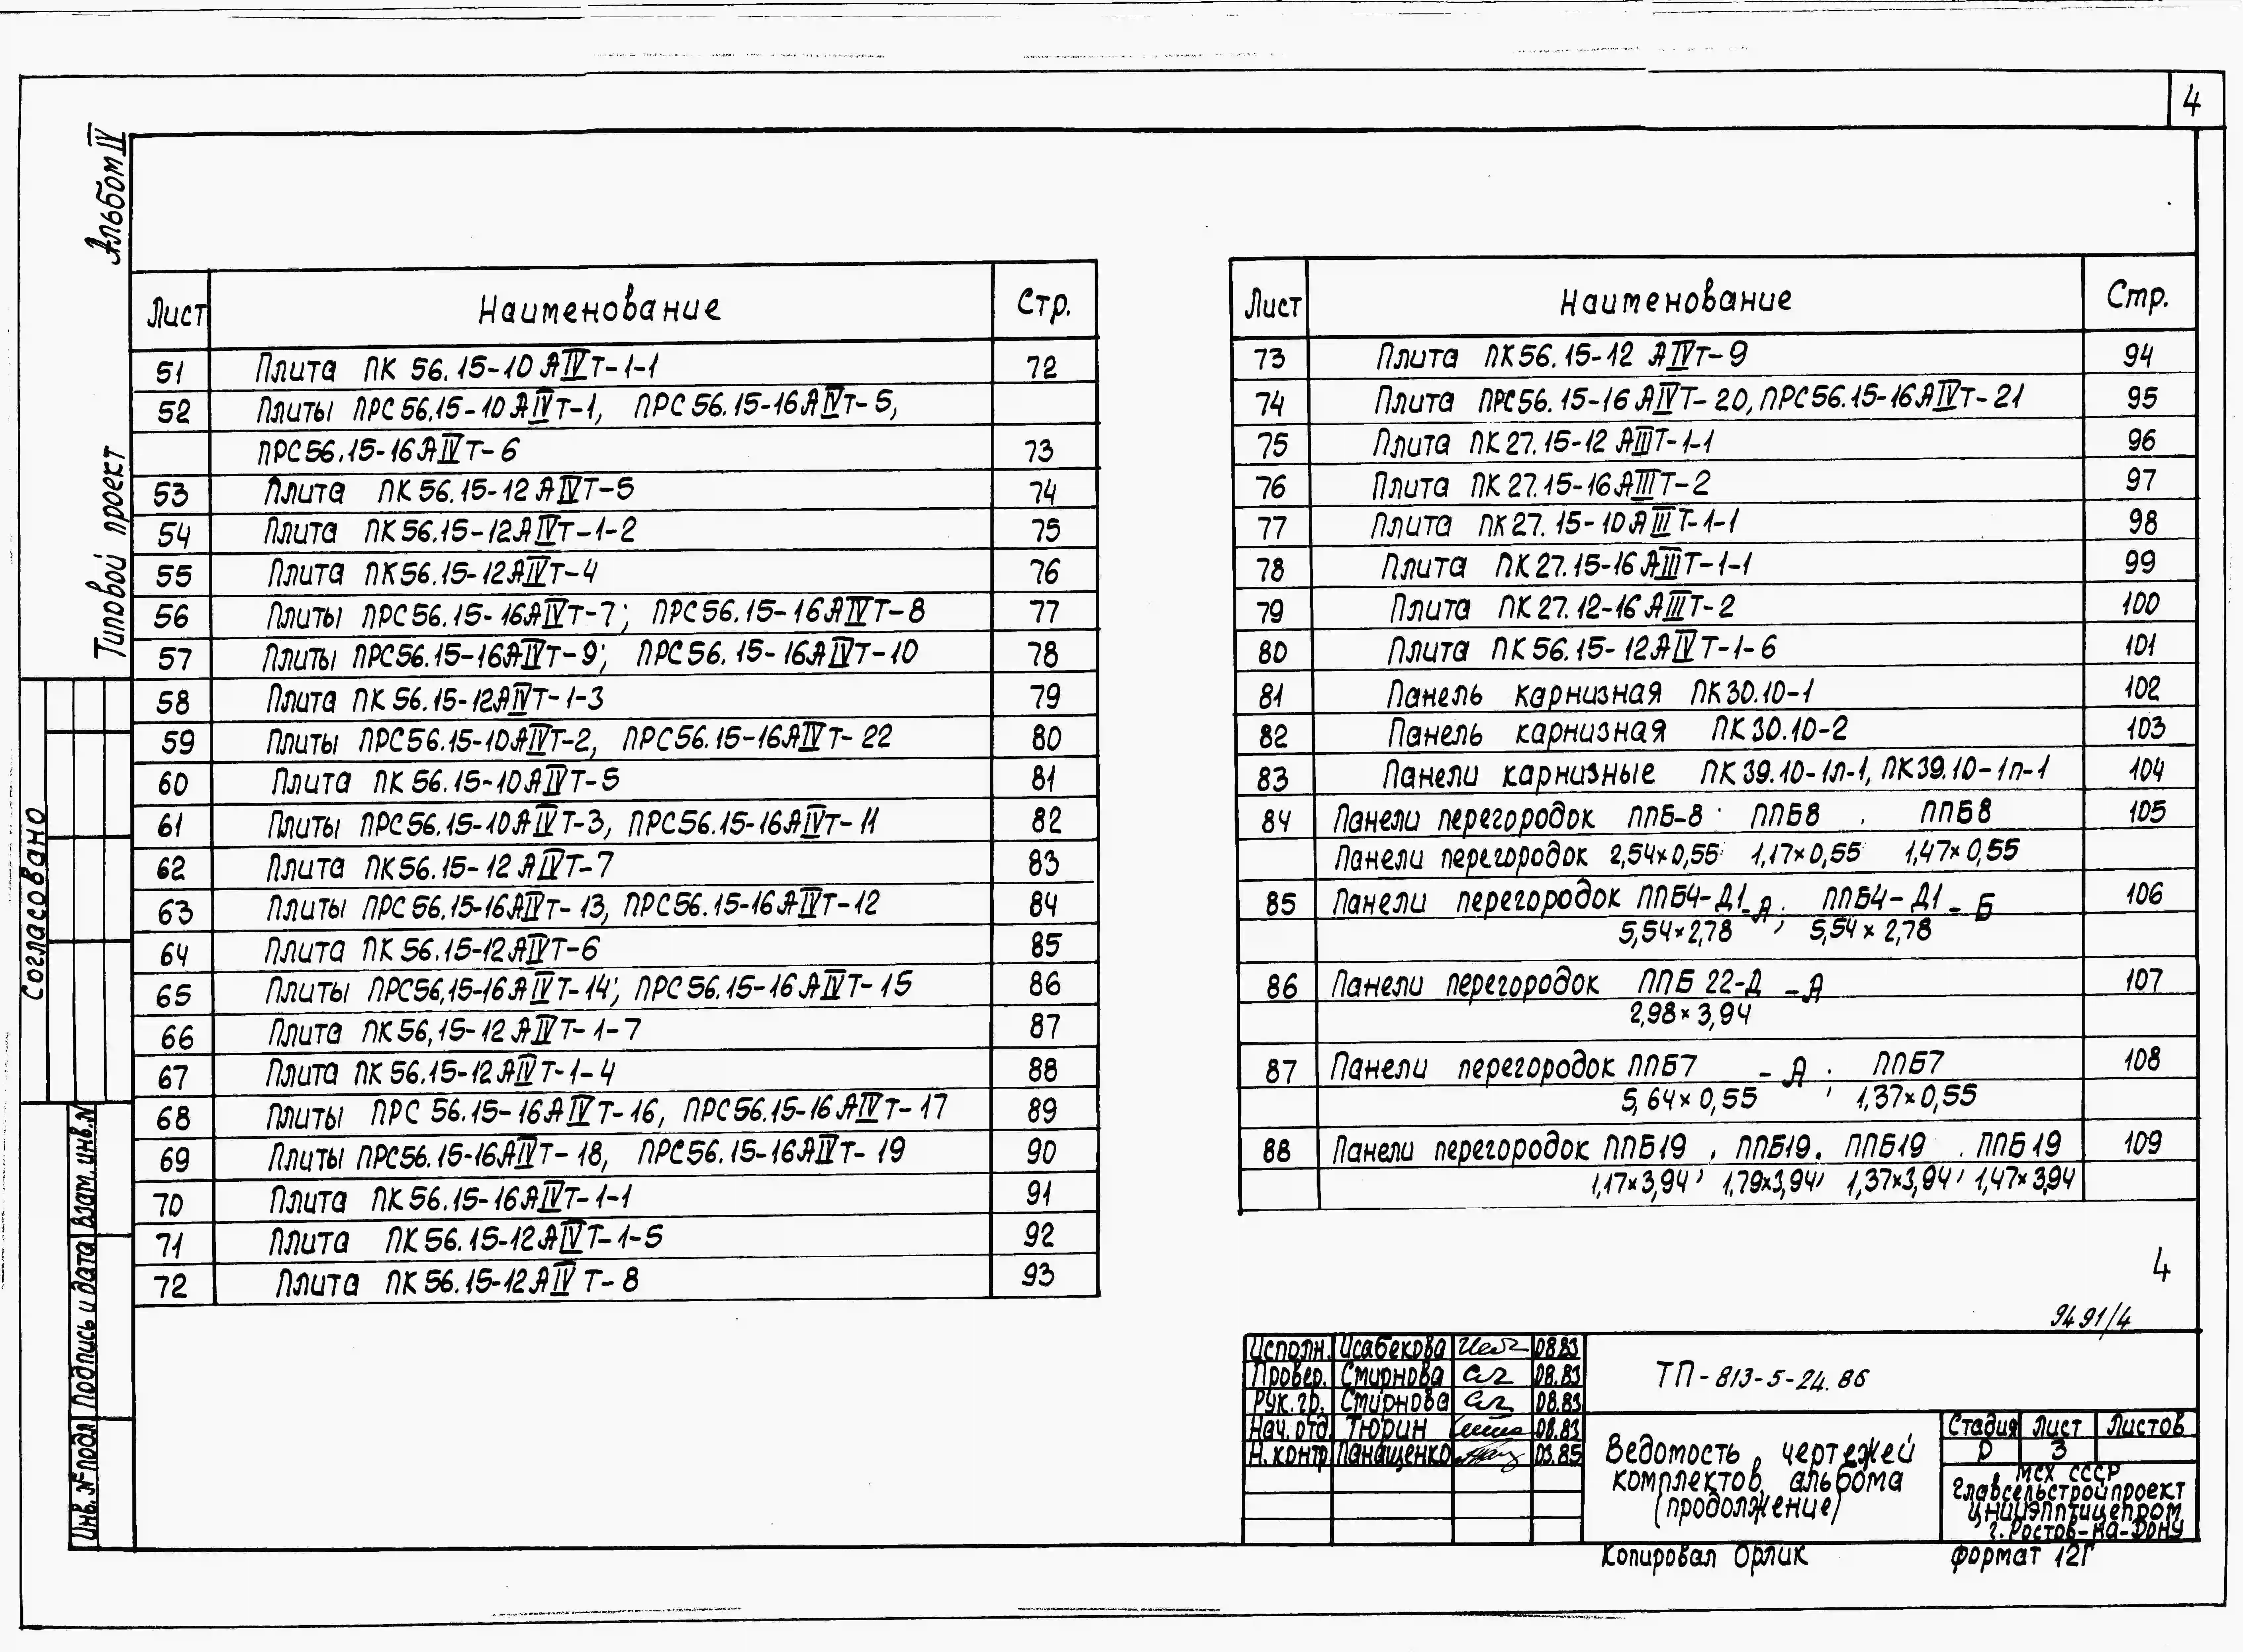 4
Альбом IV
Типовой проект
Согласовано
Взам. инв. №
Подпись и дата
Инв. № подл
Лист Наименование Стр.
51 Плита ПК 56.15-10АIVТ-1-1 72
52 Плиты ПРС56.15-10АIVТ-1, ПРС56.15-16АIVТ-5,
ПРС56.15-16АIVТ-6 73
53 Плита ПК56.15-12АIVТ-5 74
54 Плита ПК56.15-12АIVТ-1-2 75
55 Плита ПК56.15-12АIVТ-4 76
56 Плиты ПРС56.15-16АIVТ-7; ПРС56.15-16АIVТ-8 77
57 Плиты ПРС56.15-16АIVТ-9; ПРС56.15-16АIVТ-10 78
58 Плита ПК56.15-12АIVТ-1-3 79
59 Плиты ПРС56.15-10АIVТ-2, ПРС56.15-16АIVТ-22 80
60 Плита ПК56.15-10АIVТ-5 81
61 Плиты ПРС56.15-10АIVТ-3, ПРС56.15-16АIVТ-11 82
62 Плита ПК56.15-12АIVТ-7 83
63 Плиты ПРС56.15-16АIVТ-13, ПРС56.15-16АIVТ-12 84
64 Плита ПК56.15-12АIVТ-6 85
65 Плиты ПРС56,15-16АIVТ-14; ПРС56.15-16АIVТ-15 86
66 Плита ПК56,15-12АIVТ-1-7 87
67 Плита ПК56.15-12АIVТ-1-4 88
68 Плиты ПРС 56.15-16АIVТ-16, ПРС56.15-16АIVТ-17 89
69 Плиты ПРС56.15-16АIVТ-18, ПРС56.15-16АIVТ-19 90
70 Плита ПК56.15-16АIVТ-1-1 91
71 Плита ПК56.15-12АIVТ-1-5 92
72 Плита ПК56.15-12АIVТ-8 93
Лист Наименование Стр.
73 Плита ПК56.15-12 АIVТ-9 94
74 Плита ПРС56.15-16АIVТ-20, ПРС56.15-16АIVТ-21 95
75 Плита ПК27.15-12 АIIIТ-1-1 96
76 Плита ПК27.15-16АIIIТ-2 97
77 Плита ПК27.15-10АIIIТ-1-1 98
78 Плита ПК27.15-16АIIIТ-1-1 99
79 Плита ПК27.12-16АIIIТ-2 100
80 Плита ПК56.15-12АIVТ-1-6 101
81 Панель карнизная ПК30.10-1 102
82 Панель карнизная ПК30.10-2 103
83 Панели карнизные ПК39.10-1л-1, ПК39.10-1п-1 104
84 Панели перегородок ППБ-8 ППБ8 ППБ8 105
Панели перегородок 2,54×0,55 1,17×0,55 1,47×0,55
85 Панели перегородок ППБ4-Д1-А; ППБ4-Д1-Б 106
5,54×2,78 5,54×2,78
86 Панели перегородок ППБ 22-Д -А 107
2,98×3,94
87 Панели перегородок ППБ7 -А; ППБ7 108
5,64×0,55 1,37×0,55
88 Панели перегородок ППБ19, ППБ19, ППБ19, ППБ19 109
1,17×3,94; 1,79×3,94; 1,37×3,94; 1,47×3,94
4
9491/4
Исполн. Исабекова 08.83
Провер. Смирнова 08.83
Рук. гр. Смирнова 08.83
Нач. отд. Тюрин 08.83
Н. контр Панащенко 03.85
ТП-813-5-24.86
Ведомость чертежей
комплектов альбома
(продолжение)
Стадия Лист Листов
Р 3
МСХ СССР
Главсельстройпроект
ЦНИИЭПптицепром
г. Ростов-на-Дону
Копировал Орлик
формат 12Г